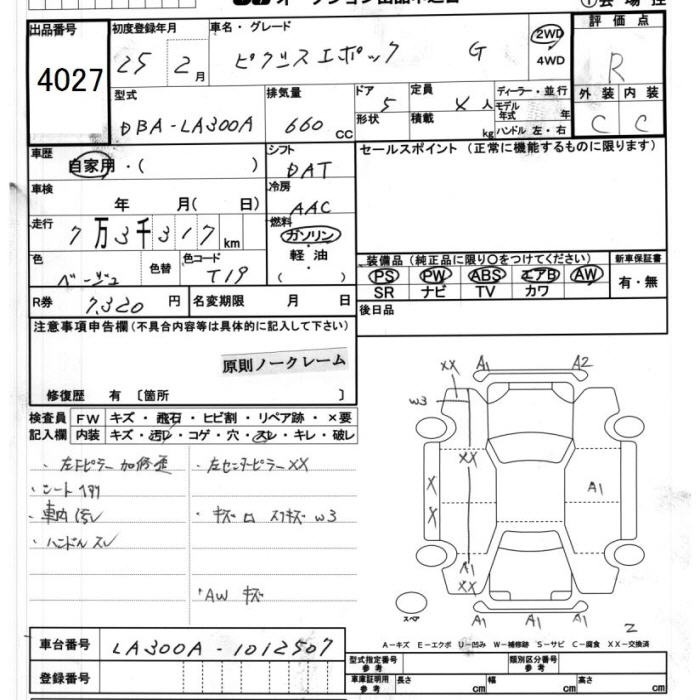 出品番号
4027
初度登録年月
25 年 2 月
車名・グレード
ピクシスエポック G
2WD
4WD
評価点
R
型式
DBA-LA300A
排気量
660 CC
ドア
5
形状
定員
4 人
積載
kg
ディーラー・並行
モデル年式 年
ハンドル 左・右
外装 内装
C C
車歴
自家用・( )
シフト
DAT
セールスポイント (正常に機能するものに限ります)
車検
年 月( 日)
冷房
AAC
走行
7万3千317 km
燃料
ガソリン・
軽油・
( )
色
ベージュ
色替
色コード
T19
装備品 (純正品に限り○をつけてください)
PS PW ABS エアB AW
SR ナビ TV カワ
新車保証書
有・無
R券
7,320 円
名変期限 月 日
後日品
注意事項申告欄 (不具合内容等は具体的に記入して下さい)
原則ノークレーム
修復歴 有 〔箇所 〕
検査員記入欄
FW キズ・飛石・ヒビ割・リペア跡・×要
内装 キズ・汚レ・コゲ・穴・スレ・キレ・破レ
・左センターピラーXX
・シート
・車内汚レ
・ハンドルスレ
w3
・AW キズ
XX
A1
A2
w3
XX
X
X
A1
A1
XX
A1
A1
A1
スペア
2
A-キズ E-エクボ U-凹み W-補修跡 S-サビ C-腐食 XX-交換済
車台番号
LA300A-1012507
登録番号
型式指定番号
参考
類別区分番号
参考
車庫証明用
参考
長さ cm
幅 cm
高さ cm